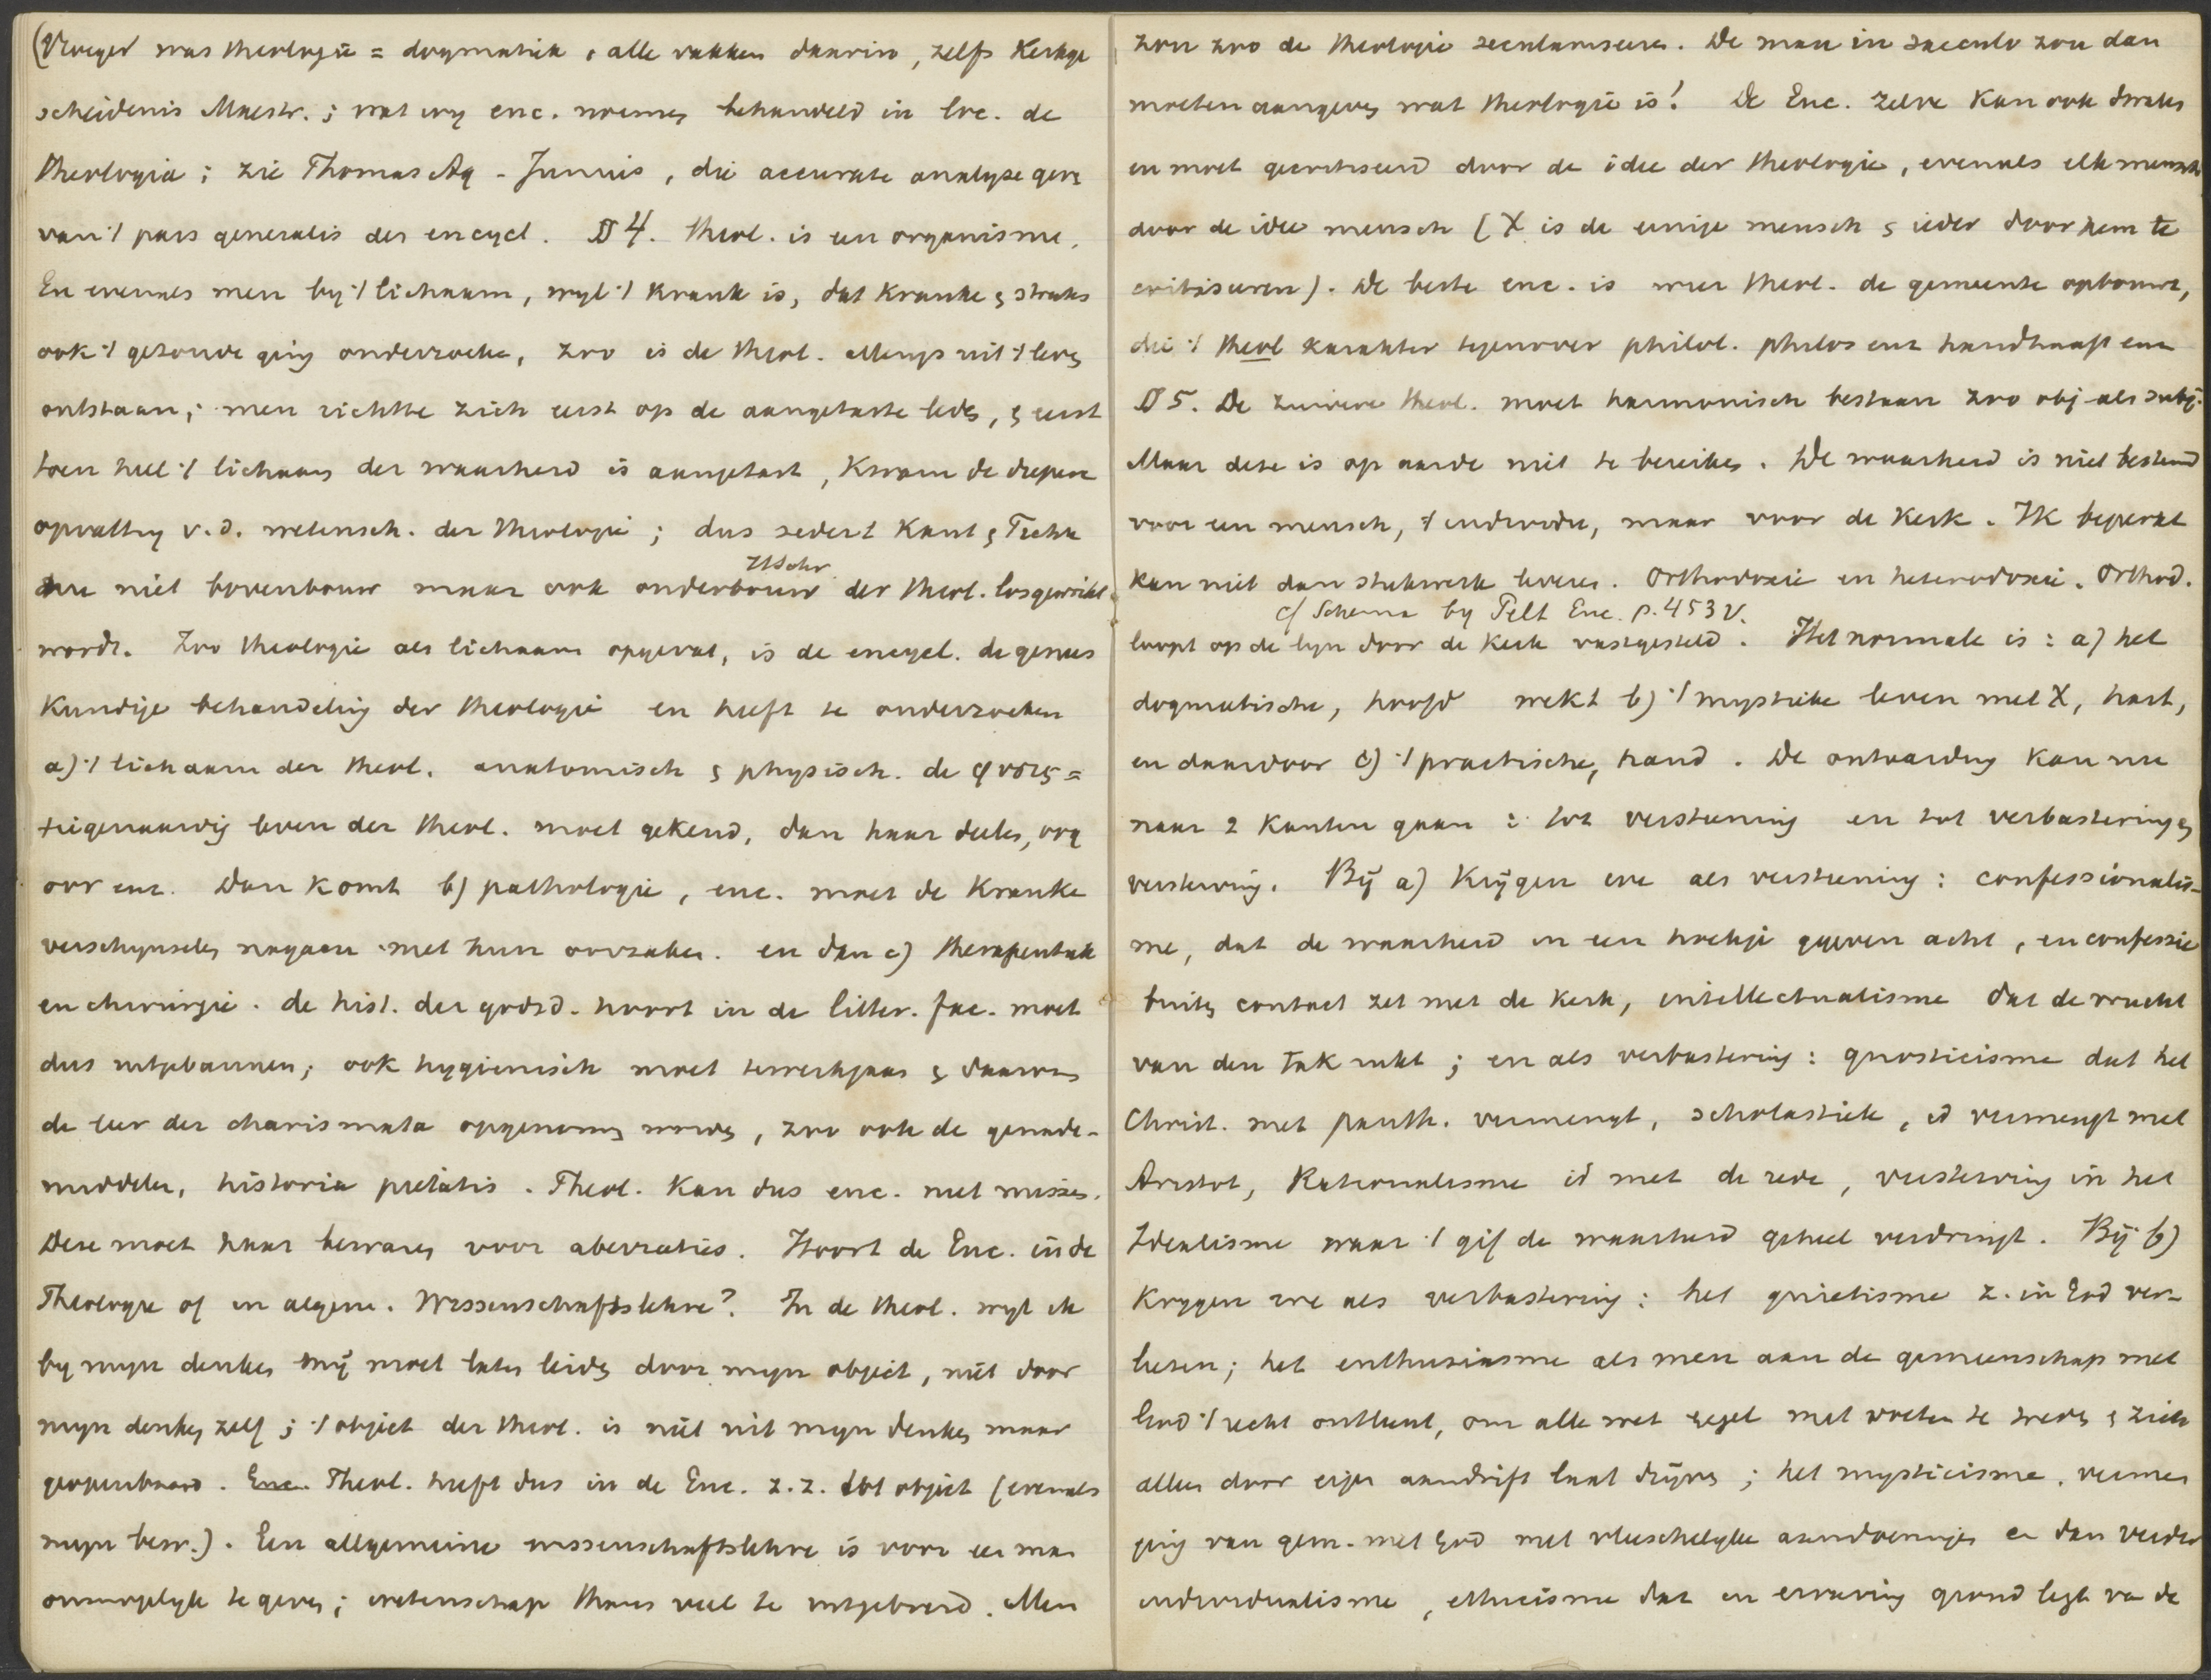 (Vroeger was theologie = dogmatiek, alle vakken daarin, zelfs Kerkge
scheidenis Maestr.; wat wy enc. noemen behandeld in loc. de
theologia; zie Thomas Aq - Junius, die accurate analyse geve
van 't pars generalis der encycl. § 4. Theol. is een organisme.
En evenals men by 't lichaam, wyl 't krank is, dat kranke & straks
ook 't gezonde ging onderzoeken, zoo is de theol. allengs uit 't leven
ontstaan; men richtte zich eerst op de aangetaste leden, & eerst
toen heel 't lichaam der waarheid is aangetast, kwam de diepere
opvatting v.d. wetensch. der theologie; dus sedert Kant & Fichte
die niet bovenbouw maar ook onderbouw der theol. losgewrikt
H Schr.
wordt. Zoo theologie als lichaam opgevat, is de encycl. de genees
kundige behandeling der theologie en heeft te onderzoeken
a) 't lichaam der theol. anatomisch & physisch. de φυσις =
't eigenaardig leven der theol. moet gekend, dan haar deelen, org
oor enz. Dan komt b) pathologie, enc. moet de kranke
verschynselen nagaan met hun oorzaken. en dan c) therapeutiek
en chirurgie. de hist. der godsd. hoort in de litter. fac. moet
dus uitgebannen; ook hygienisch moet te werk gaan & daarom
de leer der charismata opgenomen worden, zoo ook de genade-
middelen, historia pietatis. Theol. kan dus enc. niet missen.
Deze moet haar bewaren voor aberraties. Hoort de Enc. in de
Theologie of in algem. Wissenschaftslehre? In de theol. wyl ik
by myn denken mij moet laten leiden door myn object, niet door
myn denken zelf; 't object der theol. is niet uit myn denken maar
geopenbaard. Enc. Theol. heeft dus in de Enc. z.z. tot object (evenals
myn bew.). Een allgemeine wissenschaftslehre is voor een man
onmogelyk te geven; wetenschap thans veel te uitgebreid. Men
zou zoo de theologie seculariseeren. De man in saeculo zou dan
moeten aangeven wat theologie is! De Enc. zelve kan ook dwalen
en moet gecritiseerd door de idee der theologie, evenals elk mensch
door de idee mensch (X is de eenige mensch & ieder door hem te
critiseeren). De beste enc. is wier theol. de gemeente opbouwt,
die 't theol karakter tegenover philol. philos enz handhaaft enz
§ 5. De zuivere theol. moet harmonisch bestaan zoo obj- als subj.
Maar deze is op aarde niet te bereiken. De waarheid is niet bestemd
voor een mensch, 't individu, maar voor de kerk. Ik beperkt
kan niet dan stukwerk leveren. Orthodoxie en heterodoxie. Orthod.
cf Schema by Pelt Enc. p. 453 v.
loopt op de lyn door de kerk vastgesteld. Het normale is: a) het
dogmatische, hoofd wekt b) 't mystieke leven met X, hart,
en daardoor c) 't practische, hand. De ontaarding kan nu
naar 2 kanten gaan: tot versteening en tot verbastering &
versterving. Bij a) krijgen we als versteening: confessionalis-
me, dat de waarheid in een hoekje gegeven acht, en confessie
buiten contact zet met de kerk, intellectualisme dat de vrucht
van den tak rukt; en als verbastering: gnosticisme dat het
Christ. met panth. vermengt, scholastiek, id vermengt met
Aristot, Rationalisme id met de rede, versterving in het
Idealisme waar 't gif de waarheid geheel verdringt. Bij b)
krygen we als verbastering: het quietisme z. in God ver-
liezen; het enthusiasme als men aan de gemeenschap met
God 't recht ontleent, om alle wet regel met voeten te treden & zich
alleen door eigen aandrift laat drijven; het mysticisme, vermen
ging van gem. met God met vleeschelyke aandoeningen en dan verder
individualisme, ethicisme dat en ervaring grond legt van de